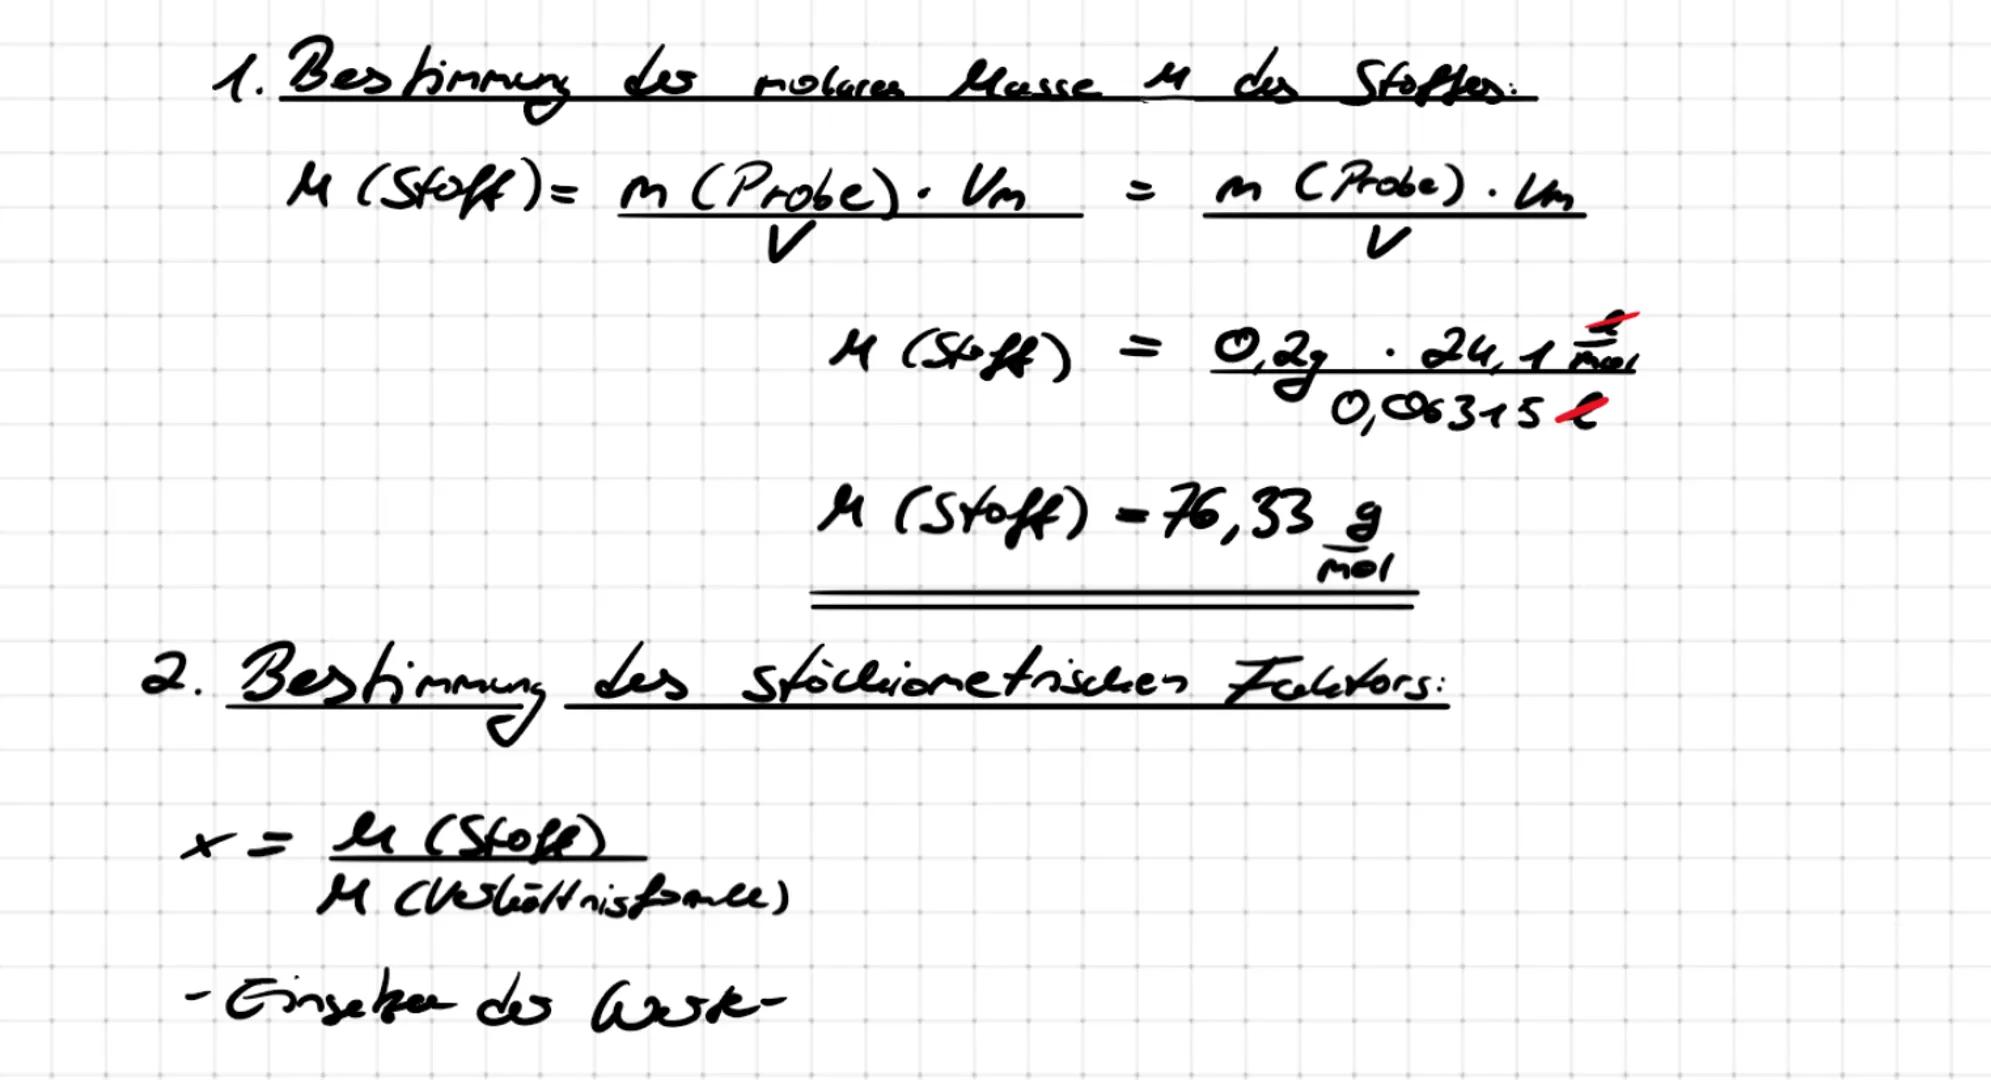 1. Bestimmung der molaren Masse M des Stoffes:
M (Stoff) = m (Probe) · Vm / V = m (Probe) · Vm / V
M (Stoff) = 0,2g · 24,1 l/mol / 0,06315 l
M (Stoff) = 76,33 g/mol
2. Bestimmung des stöchiometrischen Faktors:
x = M (Stoff) / M (Verhältnisformel)
- Einsetzen der Werte -